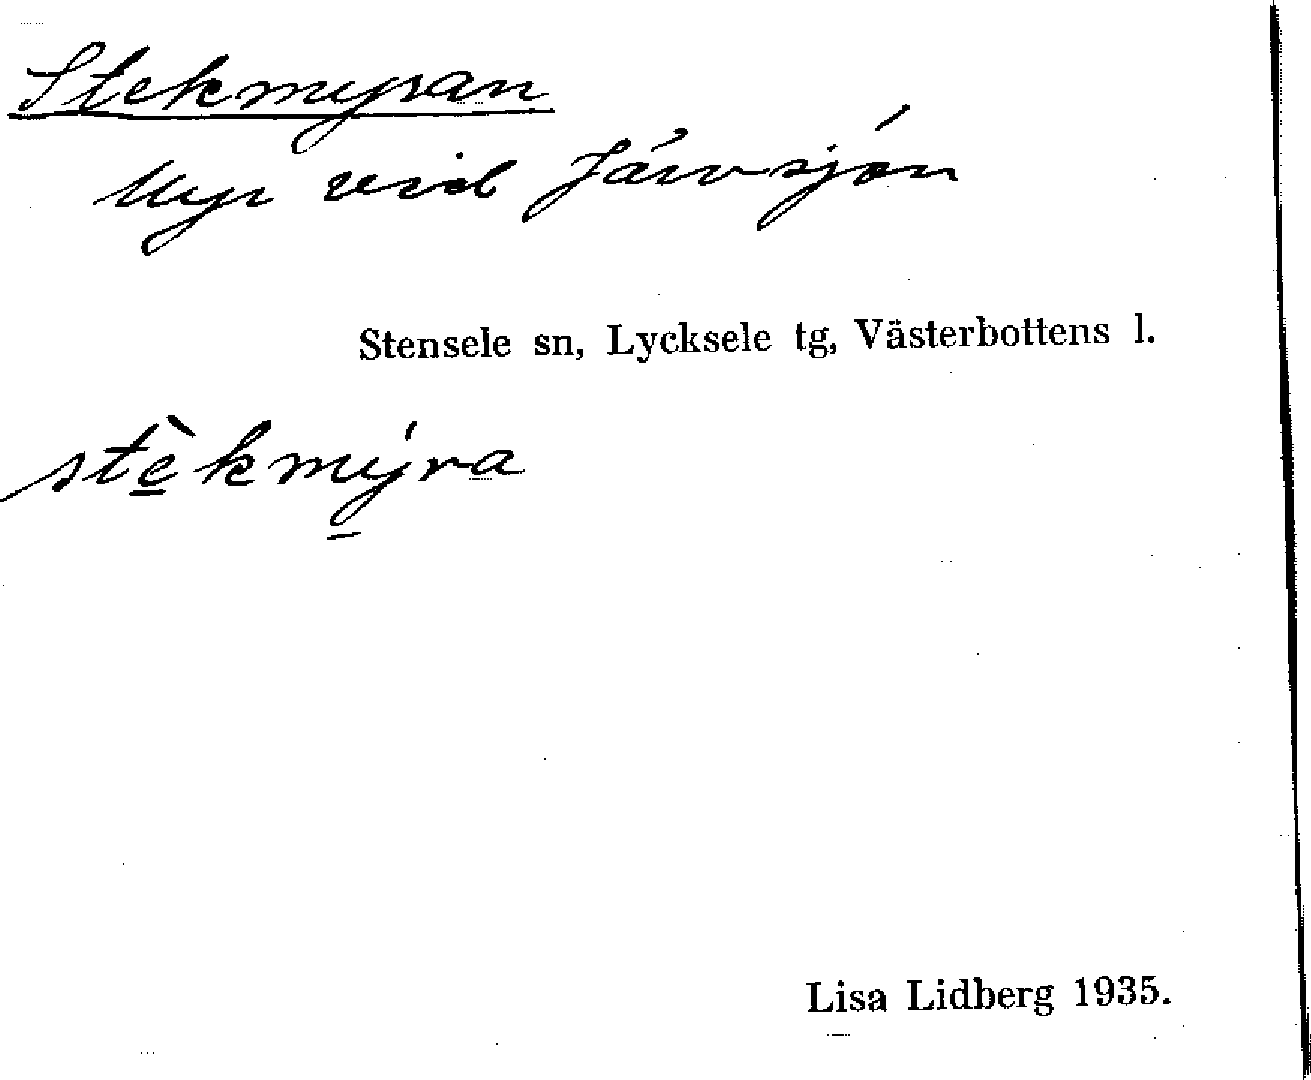 Stekmyran
Myr vid Järvsjön
Stensele sn, Lycksele tg, Västerbottens l.
stèkmýra
Lisa Lidberg 1935.